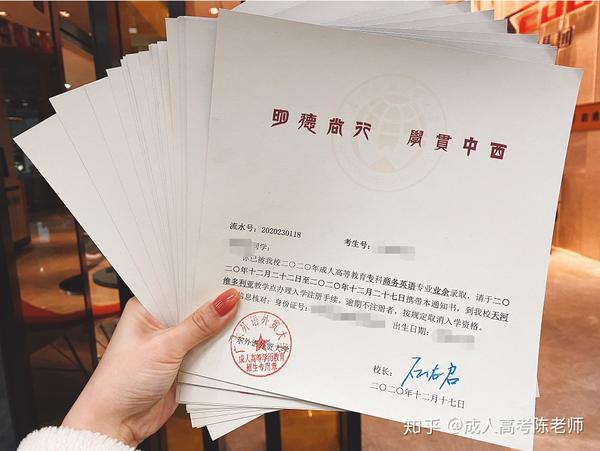 明德尚行 學貫中西
流水号：2020230118 考生号：
同学：
你已被我校二〇二〇年成人高等教育专科商务英语专业业余录取，请于二〇
二〇年十二月二十二日至二〇二〇年十二月二十七日携带本通知书，到我校天河
维多利亚教学点办理入学注册手续。逾期不注册者，按规定取消入学资格。
信息核对：身份证号： 出生日期：
广东外语外贸大学
成人高等学历教育
招生专用章
校长：
二〇二〇年十二月十七日
知乎 @成人高考陈老师